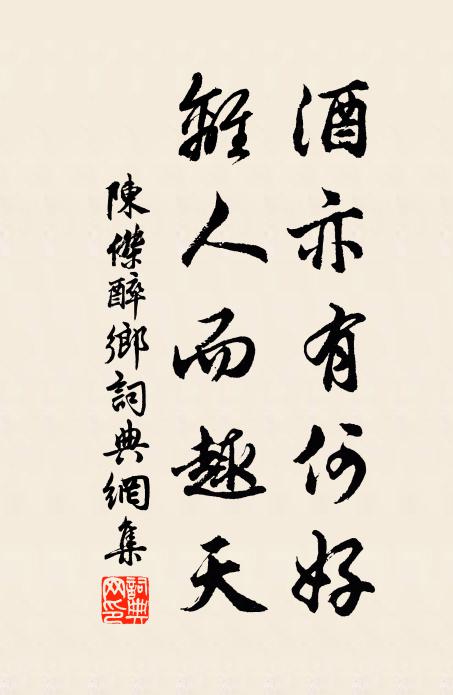 酒亦有何好
離人而趣天
陳傑醉鄉詞典網集
詞典網印